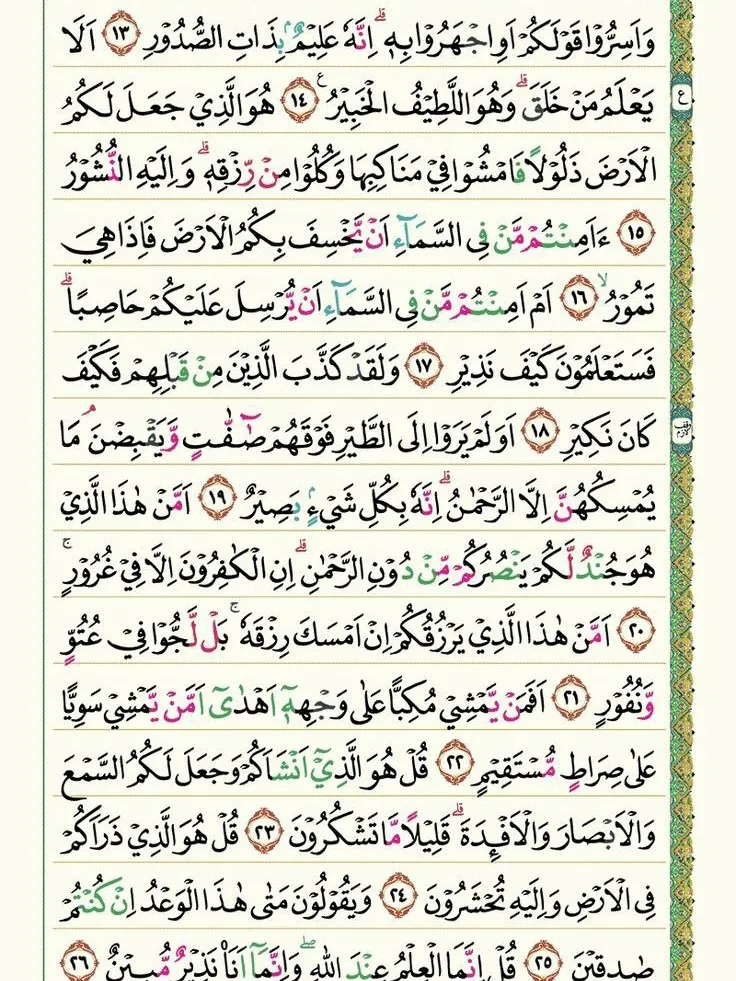 وَاَسِرُّوْا قَوْلَكُمْ اَوِاجْهَرُوْا بِهٖ ۗاِنَّهٗ عَلِيْمٌ ۢبِذَاتِ الصُّدُوْرِ ١٣ اَلَا
يَعْلَمُ مَنْ خَلَقَۗ وَهُوَ اللَّطِيْفُ الْخَبِيْرُ ࣖ ١٤ هُوَ الَّذِيْ جَعَلَ لَكُمُ
ع
الْاَرْضَ ذَلُوْلًا فَامْشُوْا فِيْ مَنَاكِبِهَا وَكُلُوْا مِنْ رِّزْقِهٖۗ وَاِلَيْهِ النُّشُوْرُ
١٥ ءَاَمِنْتُمْ مَّنْ فِى السَّمَاۤءِ اَنْ يَّخْسِفَ بِكُمُ الْاَرْضَ فَاِذَا هِيَ
تَمُوْرُۙ ١٦ اَمْ اَمِنْتُمْ مَّنْ فِى السَّمَاۤءِ اَنْ يُّرْسِلَ عَلَيْكُمْ حَاصِبًاۗ
فَسَتَعْلَمُوْنَ كَيْفَ نَذِيْرِ ١٧ وَلَقَدْ كَذَّبَ الَّذِيْنَ مِنْ قَبْلِهِمْ فَكَيْفَ
كَانَ نَكِيْرِ ١٨ اَوَلَمْ يَرَوْا اِلَى الطَّيْرِ فَوْقَهُمْ صٰۤفّٰتٍ وَّيَقْبِضْنَۘ مَا
وقف لازم
يُمْسِكُهُنَّ اِلَّا الرَّحْمٰنُۗ اِنَّهٗ بِكُلِّ شَيْءٍۢ بَصِيْرٌ ١٩ اَمَّنْ هٰذَا الَّذِيْ
هُوَ جُنْدٌ لَّكُمْ يَنْصُرُكُمْ مِّنْ دُوْنِ الرَّحْمٰنِۗ اِنِ الْكٰفِرُوْنَ اِلَّا فِيْ غُرُوْرٍۚ
٢٠ اَمَّنْ هٰذَا الَّذِيْ يَرْزُقُكُمْ اِنْ اَمْسَكَ رِزْقَهٗ ۚ بَلْ لَّجُّوْا فِيْ عُتُوٍّ
وَّنُفُوْرٍ ٢١ اَفَمَنْ يَّمْشِيْ مُكِبًّا عَلٰى وَجْهِهٖٓ اَهْدٰىٓ اَمَّنْ يَّمْشِيْ سَوِيًّا
عَلٰى صِرَاطٍ مُّسْتَقِيْمٍ ٢٢ قُلْ هُوَ الَّذِيْٓ اَنْشَاَكُمْ وَجَعَلَ لَكُمُ السَّمْعَ
وَالْاَبْصَارَ وَالْاَفْـِٕدَةَۗ قَلِيْلًا مَّا تَشْكُرُوْنَ ٢٣ قُلْ هُوَ الَّذِيْ ذَرَاَكُمْ
فِى الْاَرْضِ وَاِلَيْهِ تُحْشَرُوْنَ ٢٤ وَيَقُوْلُوْنَ مَتٰى هٰذَا الْوَعْدُ اِنْ كُنْتُمْ
صٰدِقِيْنَ ٢٥ قُلْ اِنَّمَا الْعِلْمُ عِنْدَ اللّٰهِ ۖوَاِنَّمَآ اَنَا۠ نَذِيْرٌ مُّبِيْنٌ ٢٦